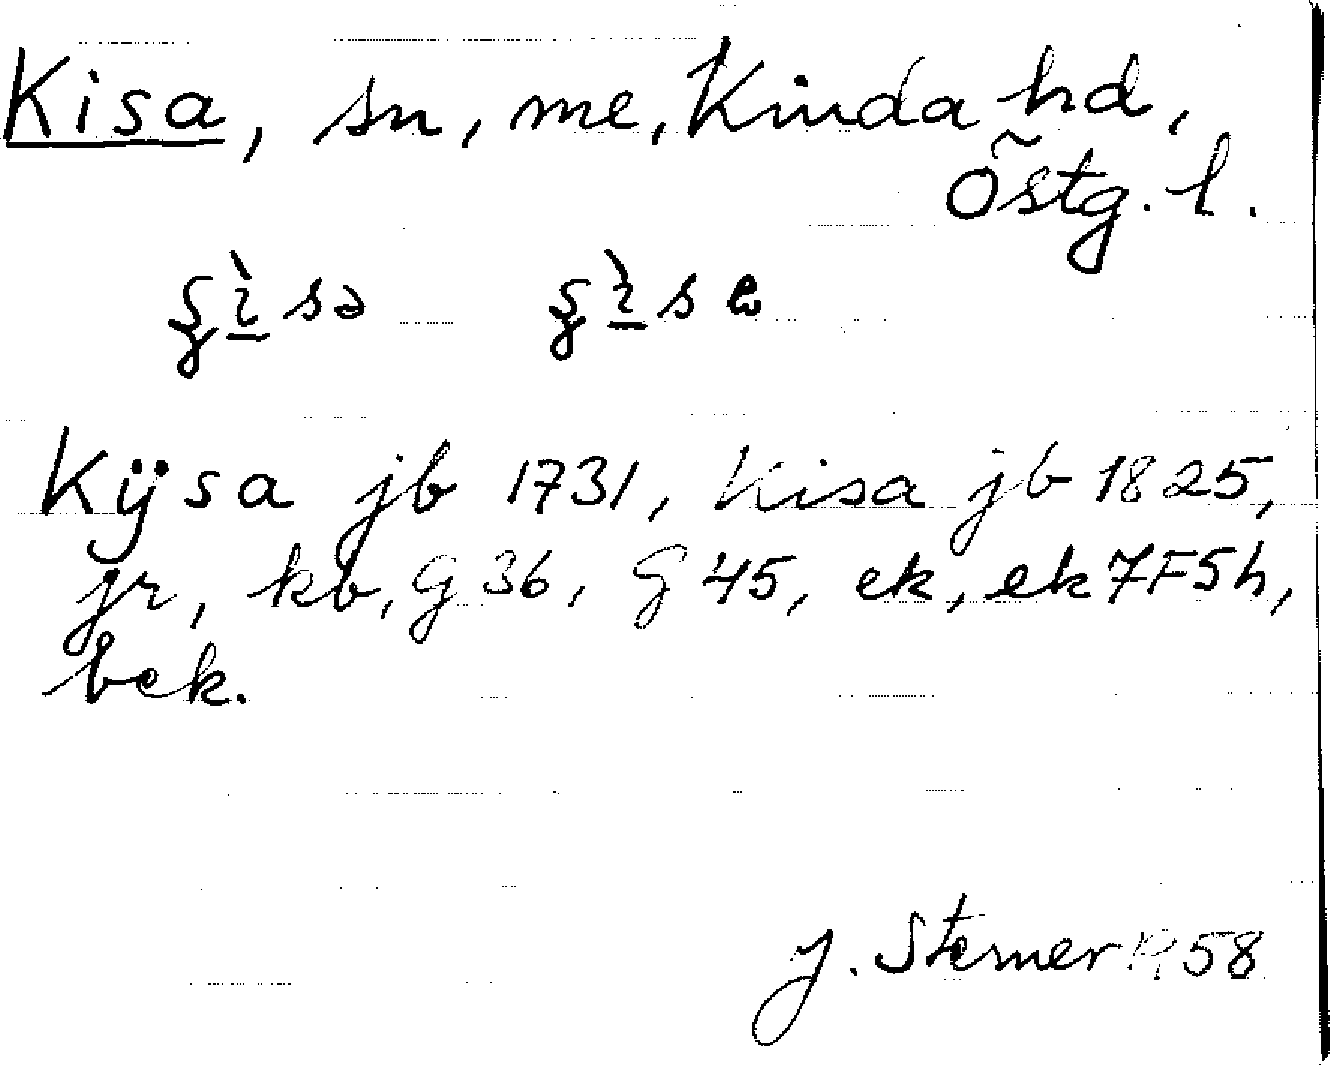 Kisa, sn, me, Kinda hd,
Östg. l.
Kijsa jb 1731, Kisa jb 1825,
jr, kb, G 36, G 45, ek, ek 7F5h,
bek.
J. Sterner 1958